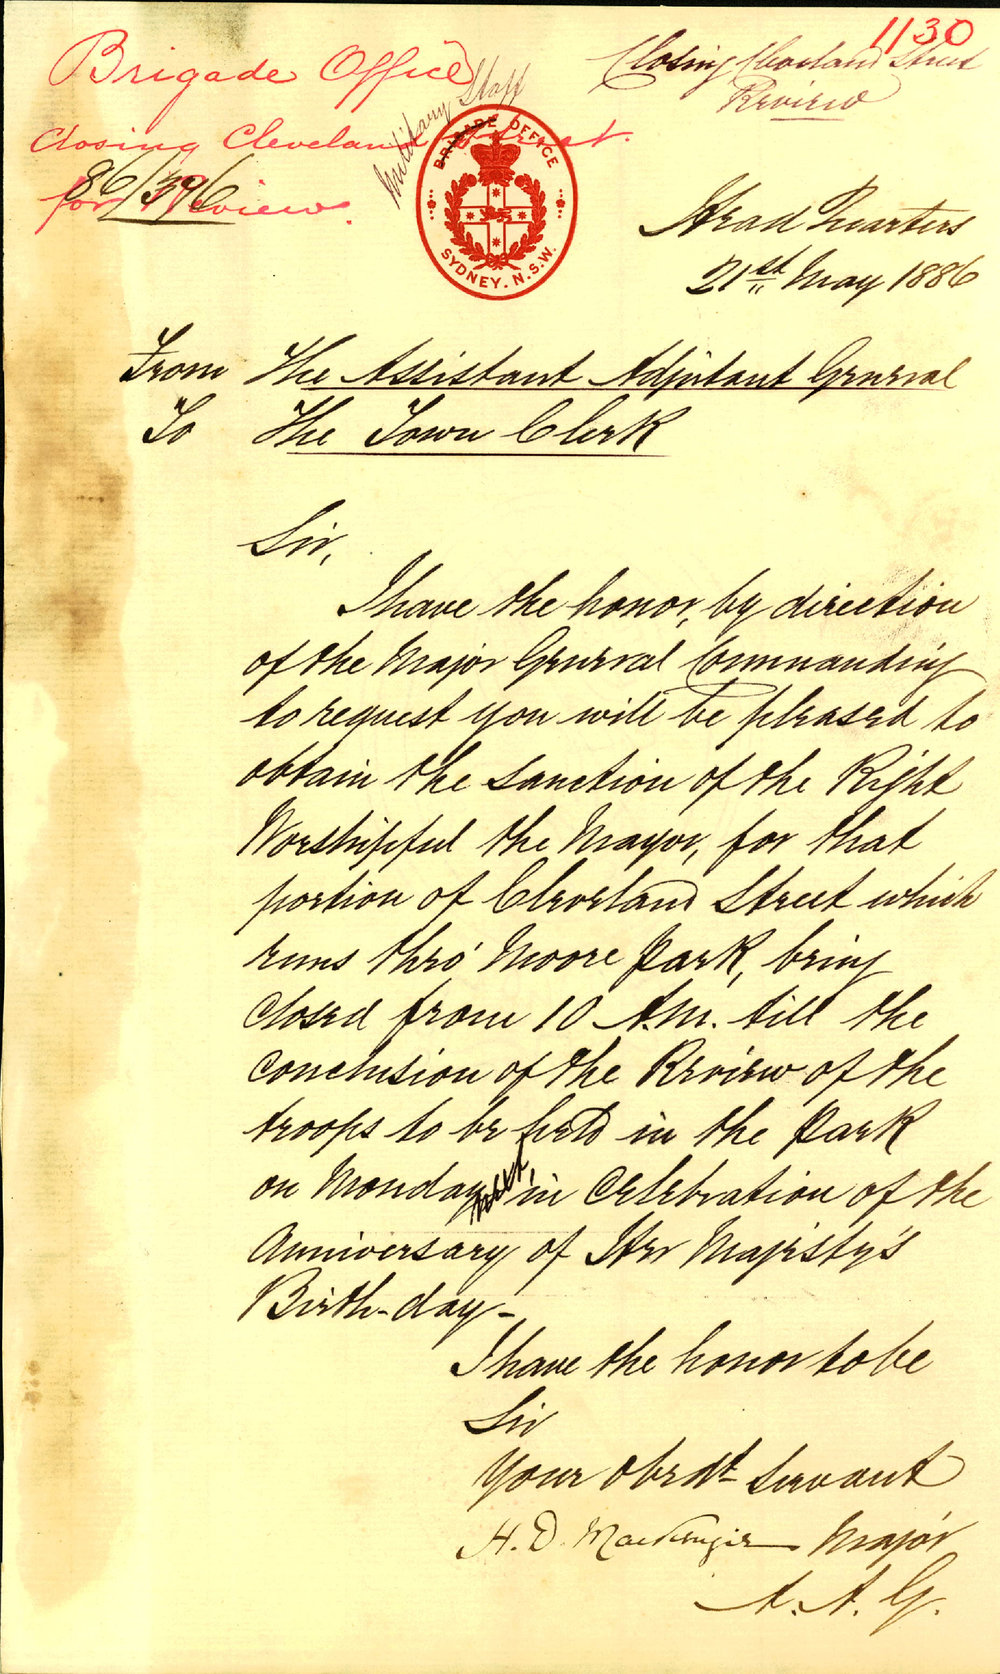 1130
Brigade Office
Closing Cleveland Street
for Review.
86/396
Military Staff
BRIGADE OFFICE
SYDNEY. N.S.W.
Closing Cleveland Street
Review
Head Quarters
21st May 1886
From The Assistant Adjutant General
To The Town Clerk
Sir,
I have the honor, by direction
of the Major General Commanding
to request you will be pleased to
obtain the sanction of the Right
Worshipful the Mayor, for that
portion of Cleveland Street which
runs thro' Moore Park, being
closed from 10 A.M. till the
conclusion of the Review of the
troops to be held in the Park
on Monday next, in celebration of the
Anniversary of Her Majesty's
Birth-day-
I have the honor to be
Sir
Your obedt servant
H. D. Mackenzie Major
A. A. G.